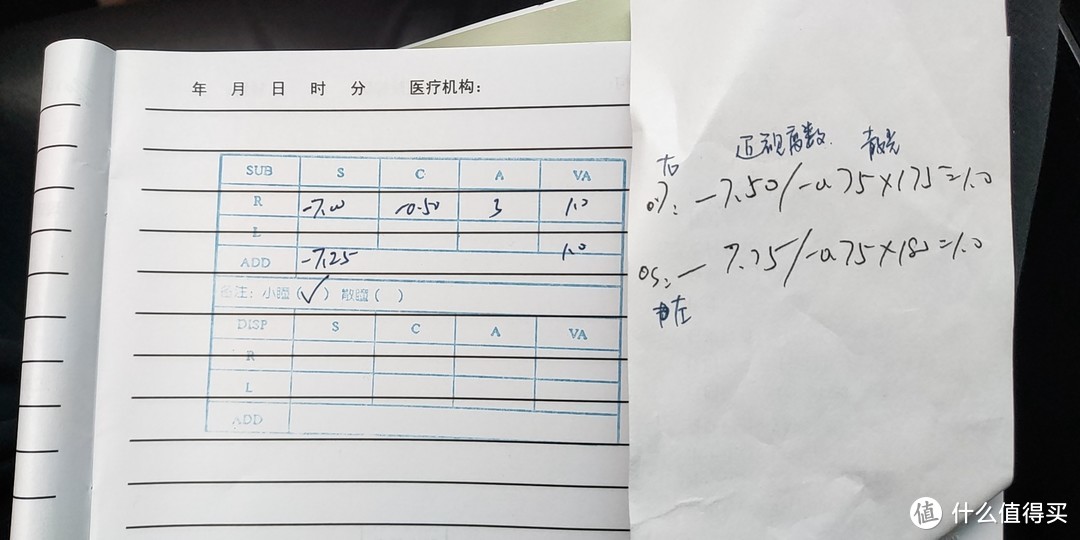 年 月 日 时 分 医疗机构:
SUB S C A VA
R -7.00 -0.50 3 1.0
L 1.0
ADD -7.25
备注: 小瞳 (✓) 散瞳 ( )
DISP S C A VA
R
L
ADD
右 近视离数. 散光
-7.50/-0.75×175=1.0
OS: -7.75/-0.75×180=1.0
左
值 什么值得买